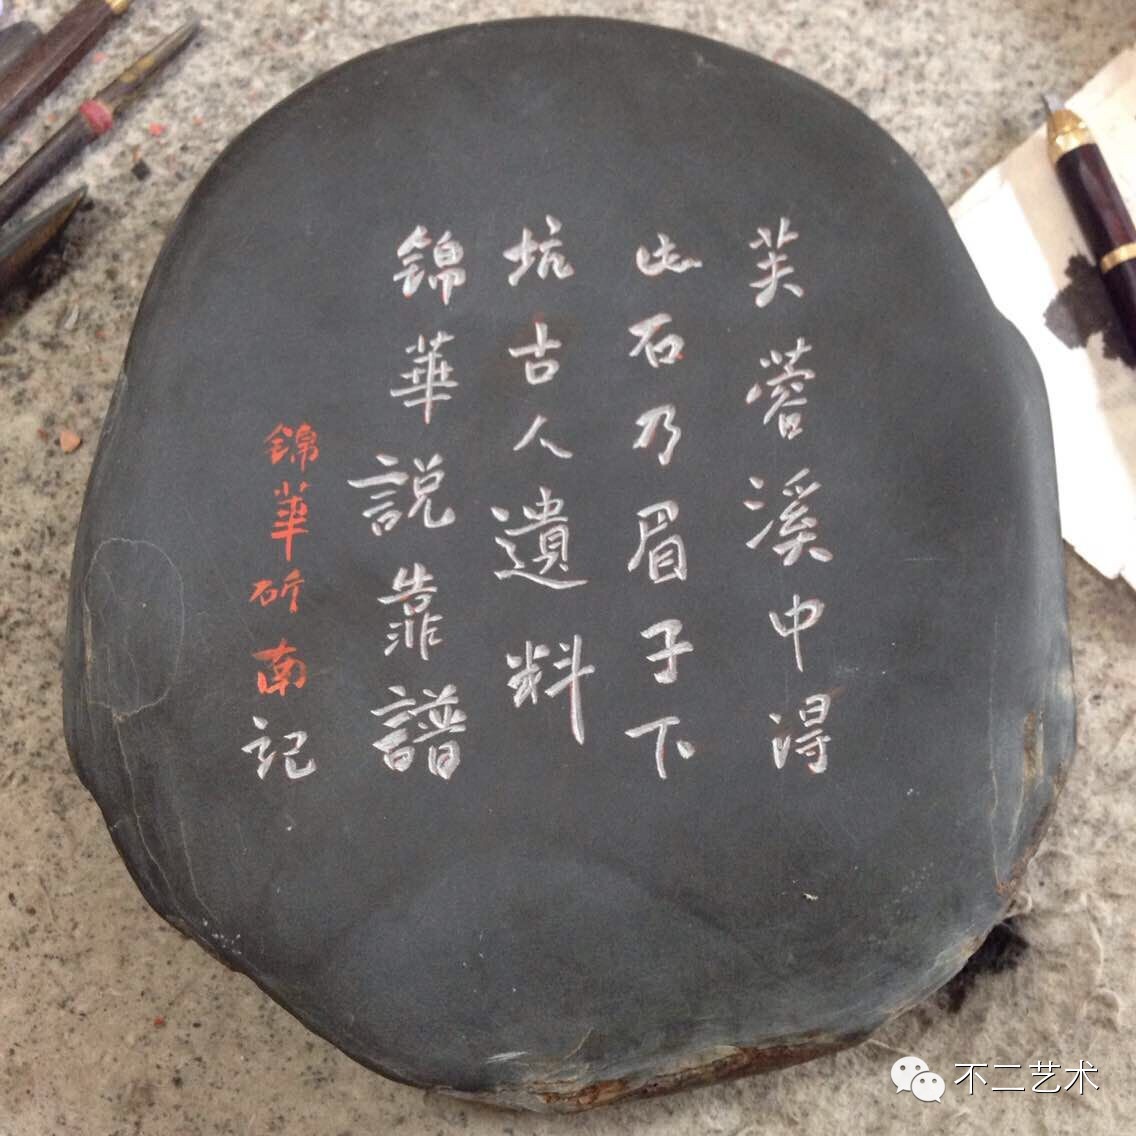 芙蓉溪中得
此石乃眉子下
坑古人遺料
錦華説靠譜
錦華斫南記
不二艺术